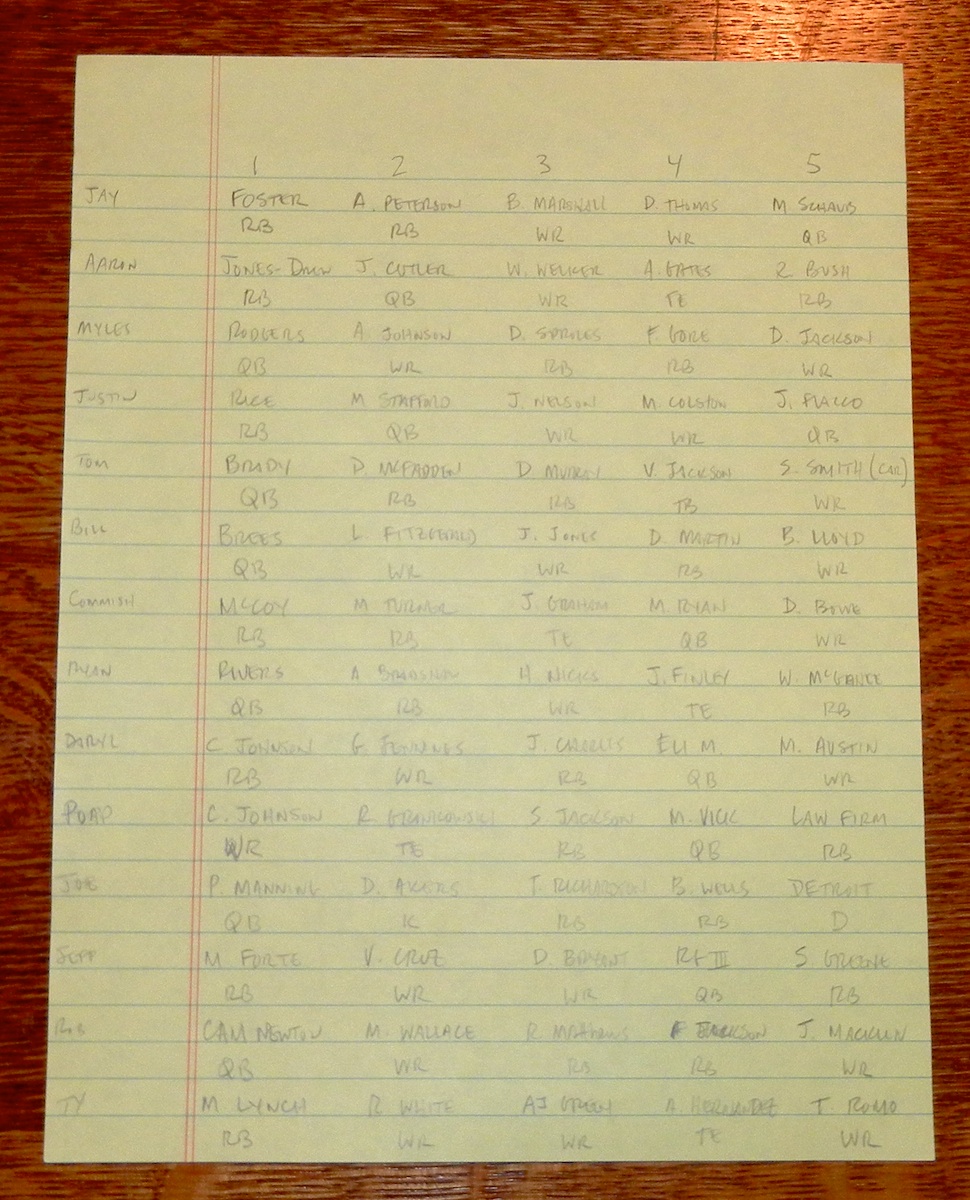 1 2 3 4 5
JAY FOSTER A. PETERSON B. MARSHALL D. THOMAS M SCHAUB
RB RB WR WR QB
AARON JONES-DREW J. CUTLER W. WELKER A. GATES R BUSH
RB QB WR TE RB
MYLES RODGERS A JOHNSON D. SPROLES F. GORE D. JACKSON
QB WR RB RB WR
JUSTIN RICE M STAFFORD J. NELSON M. COLSTON J. FLACCO
RB QB WR WR QB
TOM BRADY D. MCFADDEN D MURRAY V. JACKSON S. SMITH (CAR)
QB RB RB TB WR
BILL BREES L. FITZGERALD J. JONES D. MARTIN B. LLOYD
QB WR WR RB WR
COMMISH MCCOY M TURNER J. GRAHAM M. RYAN D. BOWE
RB RB TE QB WR
RYAN RIVERS A BRADSHAW H NICKS J. FINLEY W. MCGAHEE
QB RB WR TE RB
DARYL C. JOHNSON G. JENNINGS J. CHARLES ELI M. M. AUSTIN
RB WR RB QB WR
C. JOHNSON R GRONKOWSKI S. JACKSON M. VICK LAW FIRM
WR TE RB QB RB
JOE P. MANNING D. AKERS T. RICHARDSON B. WELLS DETROIT
QB K RB RB D
JEFF M FORTE V. CRUZ D. BRYANT RG III S. GREENE
RB WR WR QB RB
ROB CAM NEWTON M. WALLACE R MATHEWS F JACKSON J. MACKLIN
QB WR RB RB WR
TY M LYNCH R WHITE AJ GREEN A. HERNANDEZ T. ROMO
RB WR WR TE WR